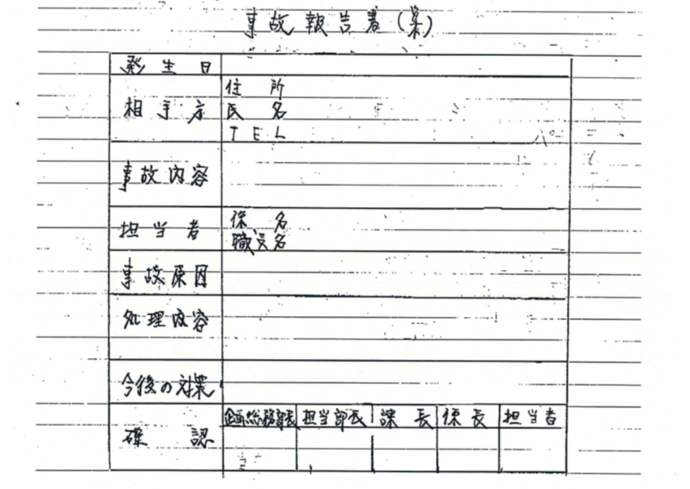 事故報告書(案)
発生日
相手方
住所
氏名
TEL
事故内容
担当者
係名
職員名
事故原因
処理内容
今後の対策
確認
企画総務部長 担当部長 課長 係長 担当者